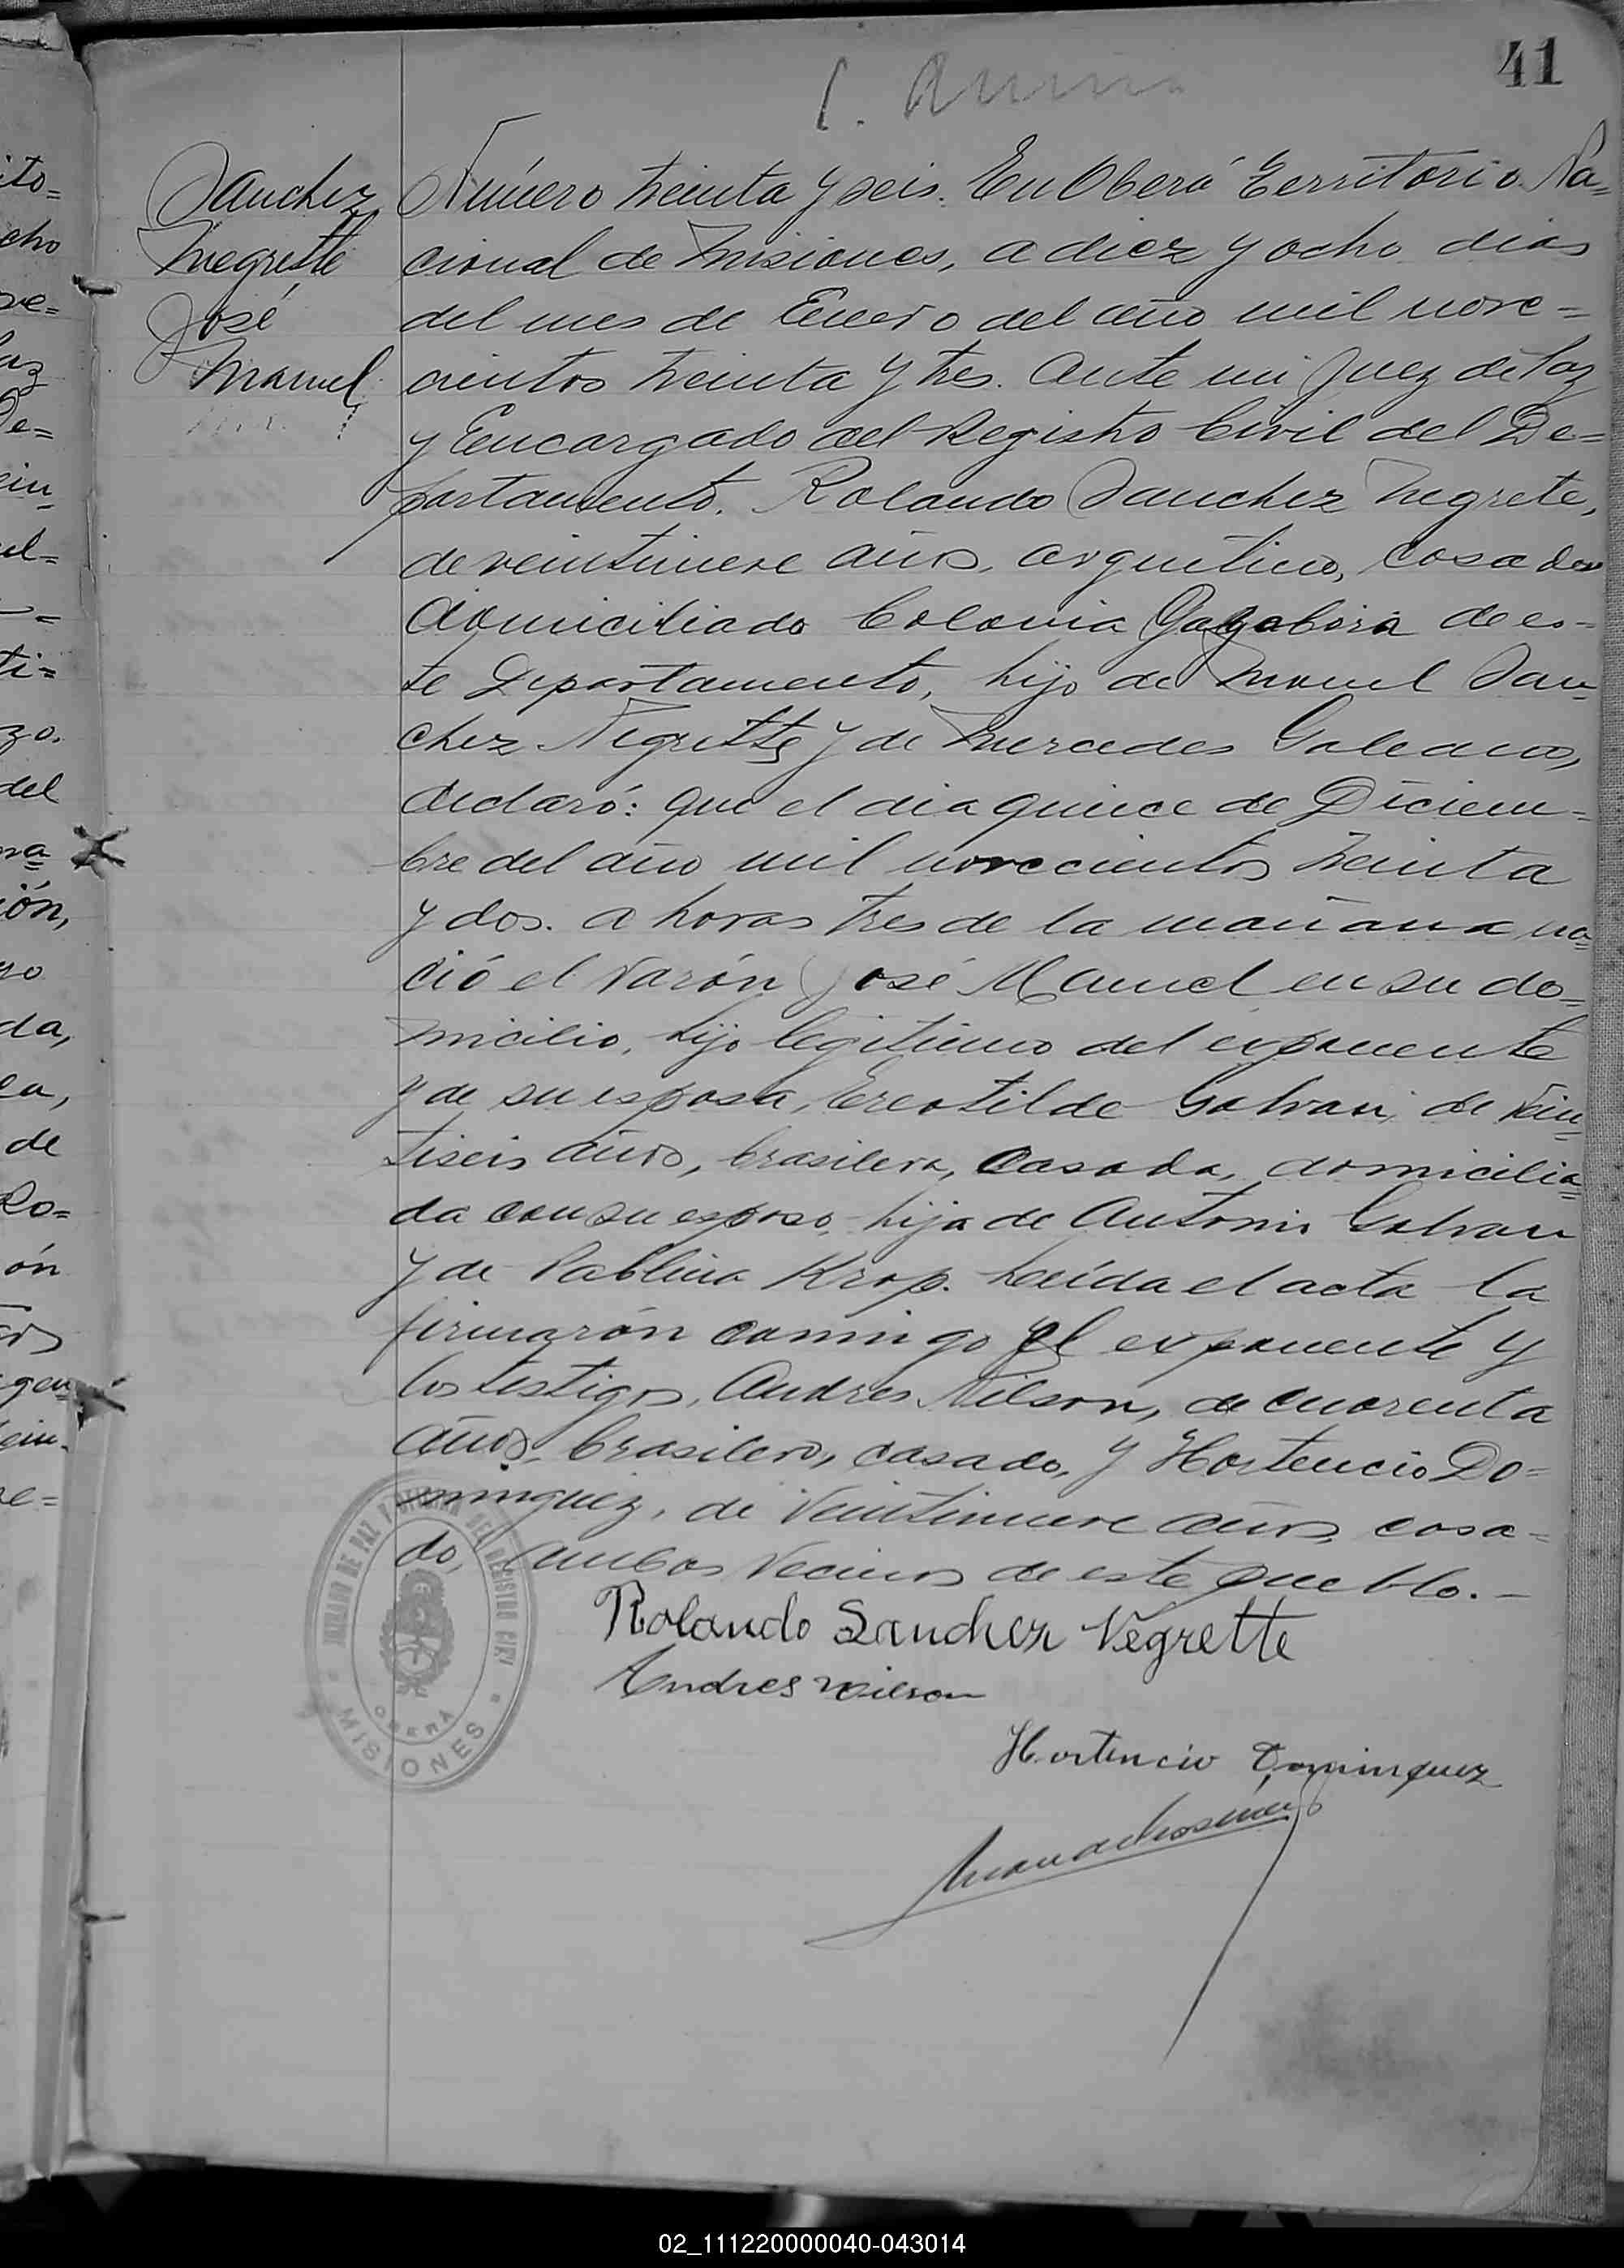 41
Sanchez
Negrette
José
Manuel
Número treinta y seis. En Oberá Territorio Na=
cional de Misiones, a diez y ocho dias
del mes de Enero del año mil nove=
cientos treinta y tres. Ante mi Juez de Paz
y Encargado del Registro Civil del De=
partamento. Rolando Sanchez Negrete,
de veintinueve años, argentino, casado,
domiciliado Colonia de es-
te Departamento, hijo de Manuel San-
chez Negrette y de Mercedes Galeano,
declaró: que el dia quince de Diciem=
bre del año mil novecientos treinta
y dos. a horas tres de la mañana na=
ció el varón José Manuel en su do=
micilio, hijo legitimo del exponente
y de su esposa, Ereotilde Galvan, de vein
tiseis años, brasilera, casada, domicilia=
da con su esposo, hija de Antonio Galvan
y de Pablina Krop. Leída el acta la
firmarón conmigo el exponente y
los testigos, Andres Nilson, de cuarenta
años, brasilero, casado, y Hortencio Do=
minguez, de veintinueve años, casa=
do, ambos vecinos de este pueblo.-
Rolando Sanchez Negrette
Andres Nilson
Hortencio Dominguez
JUZGADO DE PAZ Y OFICINA DEL REGISTRO CIVIL
OBERÁ
MISIONES
ito=
cho
ve=
az
De=
ein
ul=
ti=
zo.
del
na
ión,
yo
da,
ea,
de
Ro=
ón
gen
ein-
re=
02_111220000040-043014